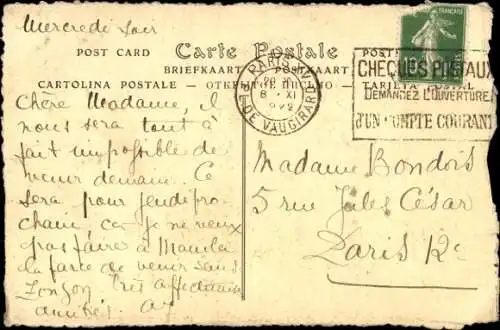 Mercredi soir
POST CARD
Carte Postale
BRIEFKAART
CARTOLINA POSTALE
Chère Madame, il
nous sera tout à
fait impossible de
venir demain. Ce
sera pour jeudi pro-
chain, car je ne veux
pas faire à
la farce de venir sans
très affectueuses
amitiés.
PARIS XV
8 - XI
R. DE VAUGIRARD
CHEQUES POSTAUX
DEMANDEZ L'OUVERTURE
D'UN COMPTE COURANT
Madame Bondois
5 rue Jules César
Paris 12e